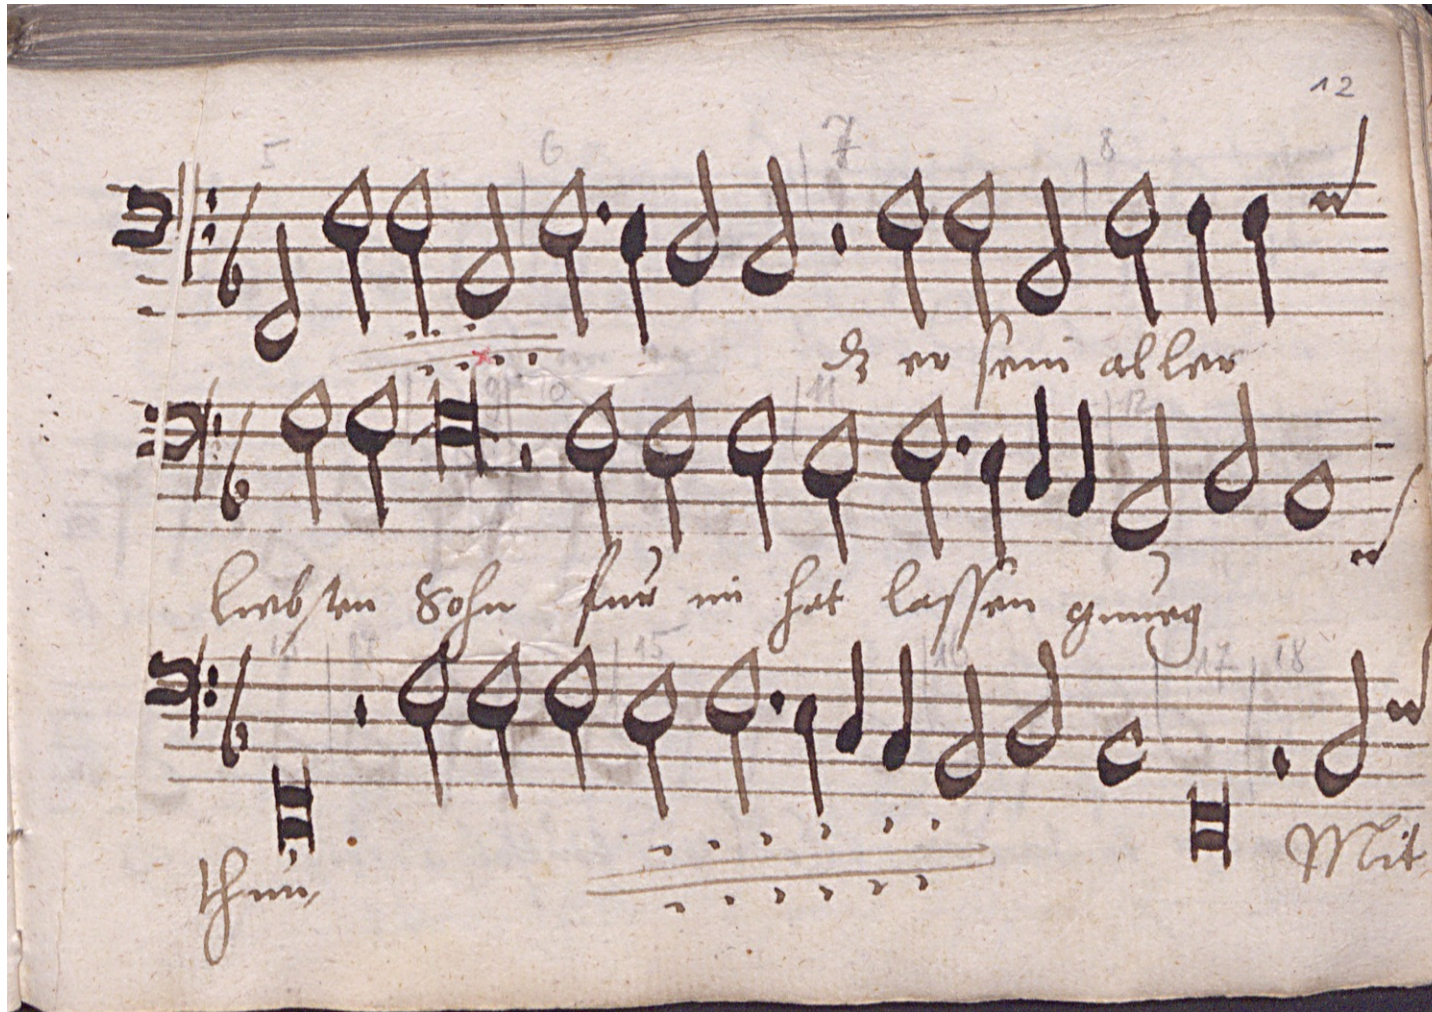 12
5 6 7 8
dz er sein aller
10 11 12
liebsten Sohn für mi hat lassen gnueg
15 16 17 18
thun,
Mit